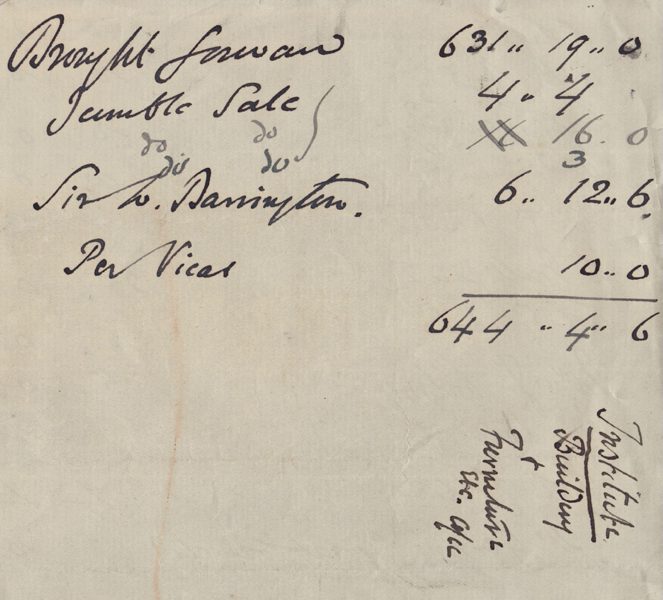 Brought forward 631 " 19 " 0
Jumble Sale 4 " 4
do do 16 . 0
do do 3
Sir W. Barrington. 6 " 12 " 6
Per Vicar 10 " 0
644 " 4 " 6
Institute
Building
+
Furniture
Etc. a/c